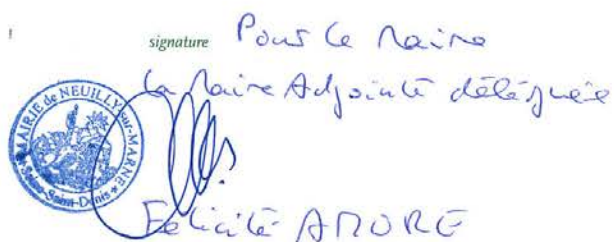 signature Pour le Maire
la Maire Adjointe déléguée
MAIRIE de NEUILLY-sur-MARNE
* Seine-Saint-Denis *
Félicité AMORE